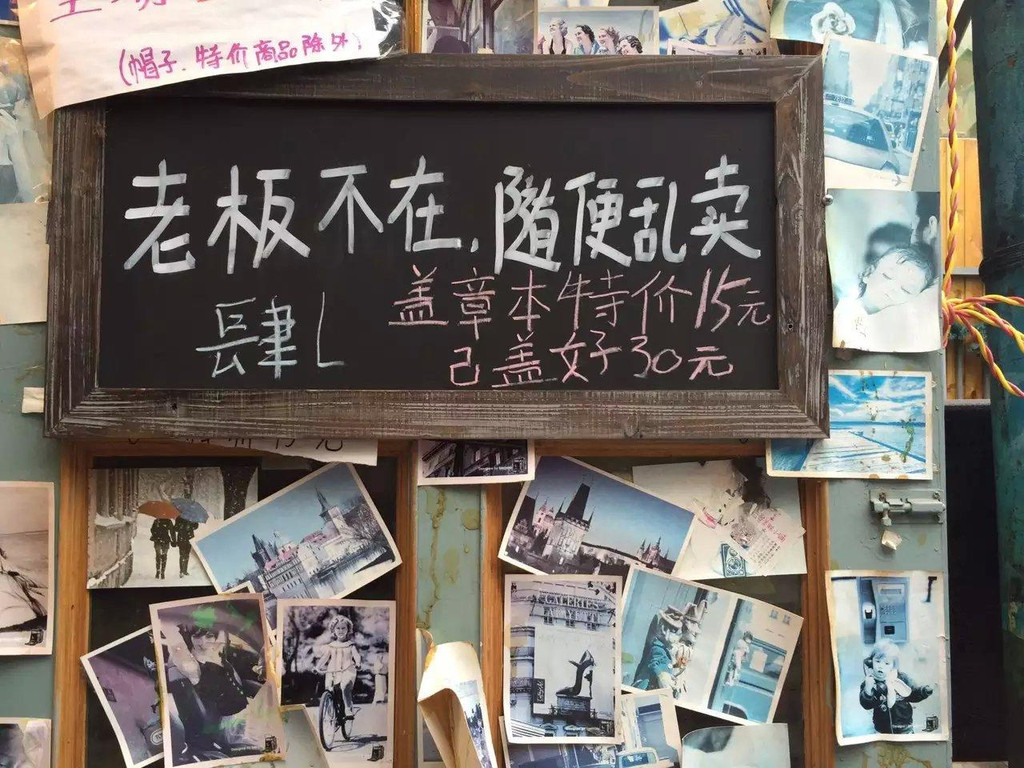 (帽子、特价商品除外)
老板不在,隨便乱卖
盖章本特价15元
肆L
己盖好30元
GALERIES